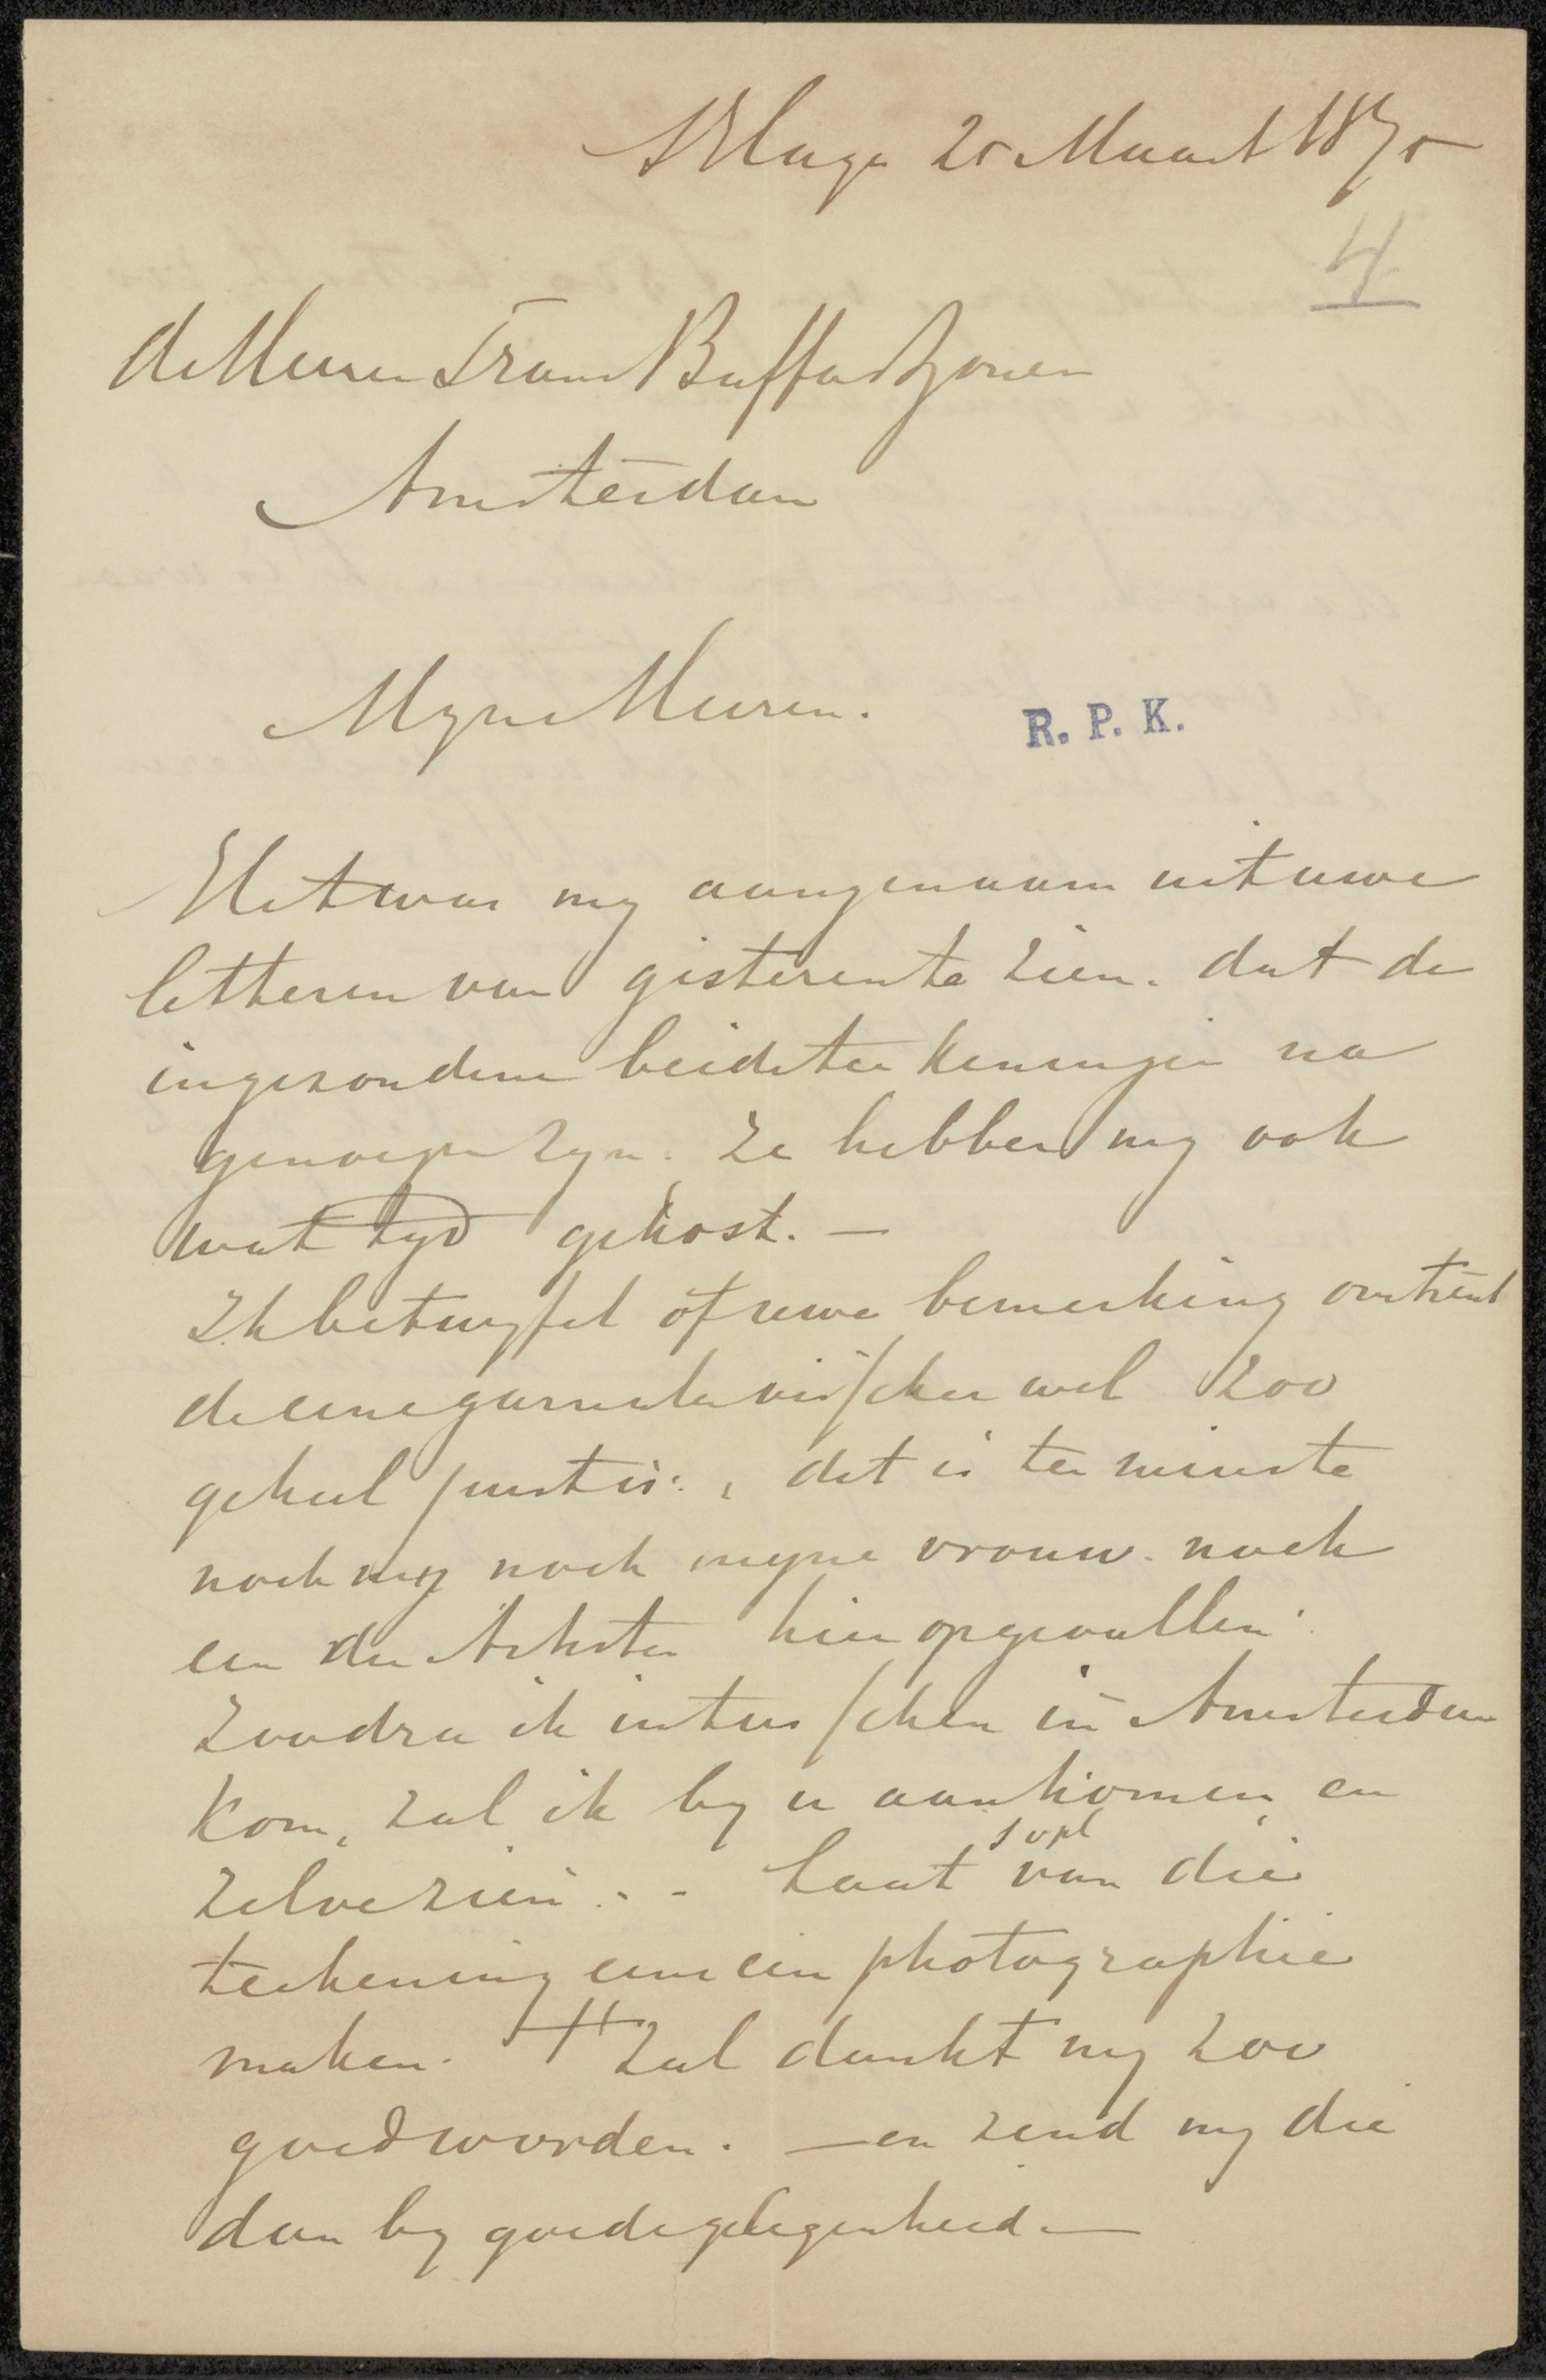 sHage 25 Maart 1875
4
de Heeren Frans Buffa & Zonen
Amsterdam
Myne Heeren.
R. P. K.
Het was my aangenaam uit uwe
letteren van gisteren te zien. dat de
ingezondene beide teekeningen na
genoegen zyn. Ze hebben my ook
wat tyd gekost. —
Ik betwyfel of uwe bemerking omtrent
de eene garnalenvisscher wel zoo
geheel juist is., dit is ten minste
noch my noch myne vrouw. noch
een der Artisten hier opgevallen.
Zoodra ik intusschen in Amsterdam
kom, zal ik by u aankomen, en
zelve zien. - Laat van die
teekening eens een photographie
maken. Het zal dunkt my zoo
goed worden. — en zend my die
dan by goede gelegenheid. —